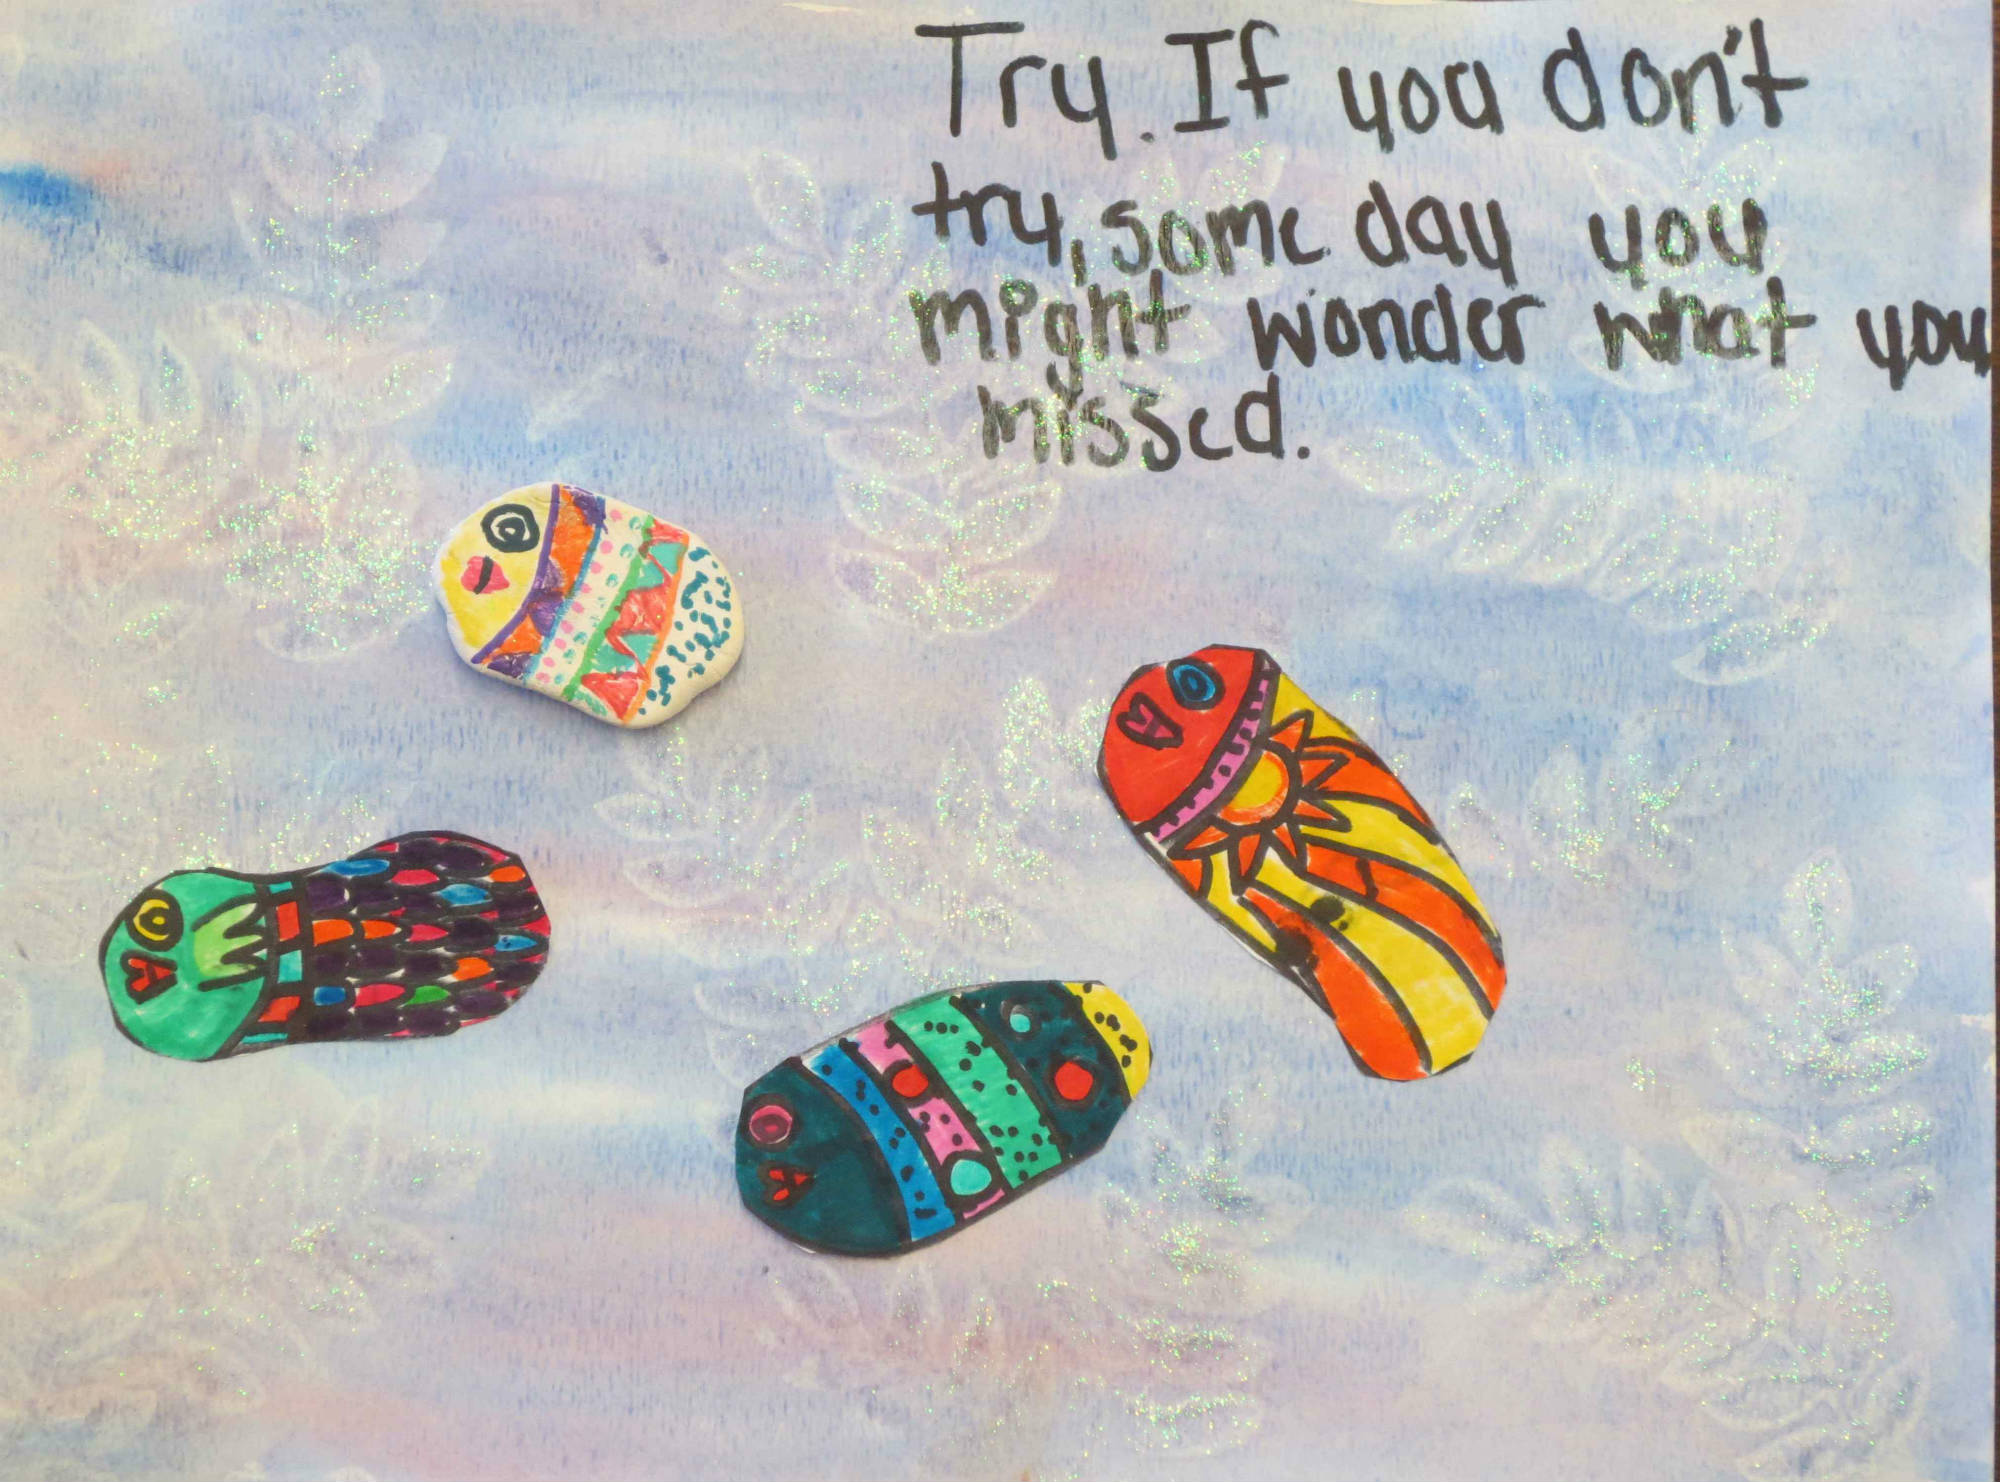 Try. If you don't
try, some day you
might wonder what you
missed.